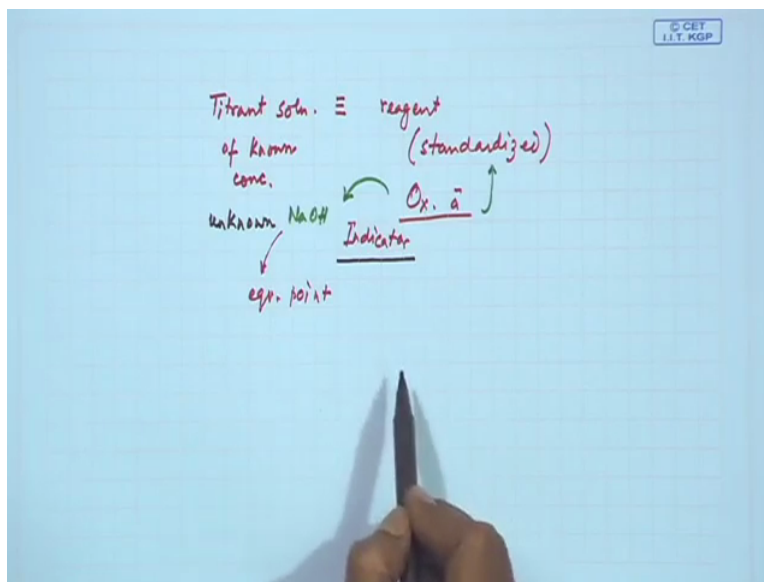 © CET
I.I.T. KGP
Titrant soln. ≡ reagent
of known (standardized)
conc.
Ox. ā
unknown NaOH
Indicator
eqv. point